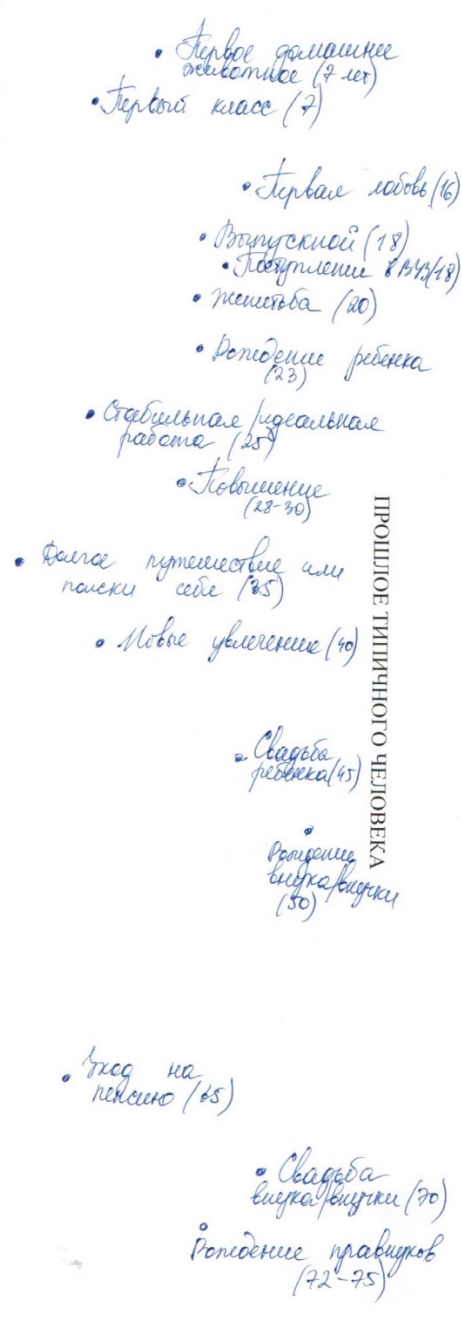 Первое домашнее
животное (7 лет)
Первый класс (7)
Первая любовь (16)
Выпускной (18)
Поступление в ВУЗ (18)
Женитьба (20)
Рождение ребенка
(23)
Стабильная/идеальная
работа (25)
Повышение
(28-30)
Долгое путешествие или
поиски себя (35)
Новые увлечения (40)
ПРОШЛОЕ ТИПИЧНОГО ЧЕЛОВЕКА
Свадьба
ребенка (45)
Рождение
внука/внучки
(50)
Уход на
пенсию (65)
Свадьба
внука/внучки (70)
Рождение правнуков
(72-75)